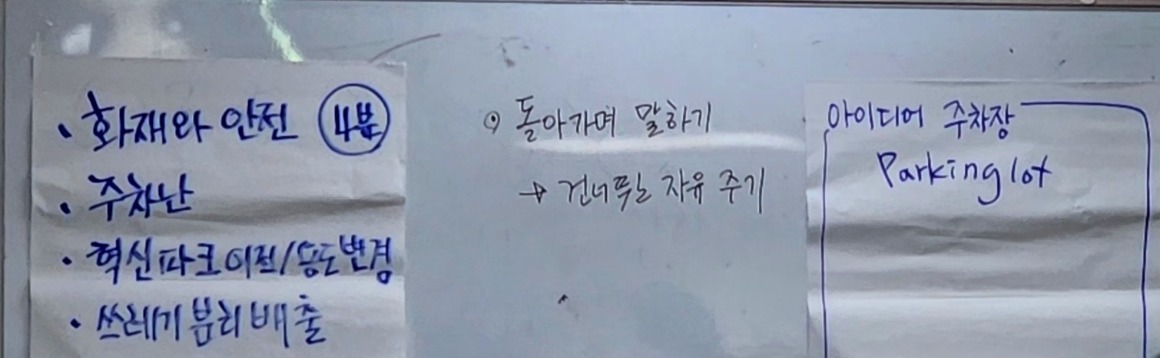 · 화재와 안전 4분
· 주차난
· 혁신파크이전/용도변경
· 쓰레기 분리배출
⊙ 돌아가며 말하기
→ 건너뛰는 자유 주기
아이디어 주차장
Parking lot